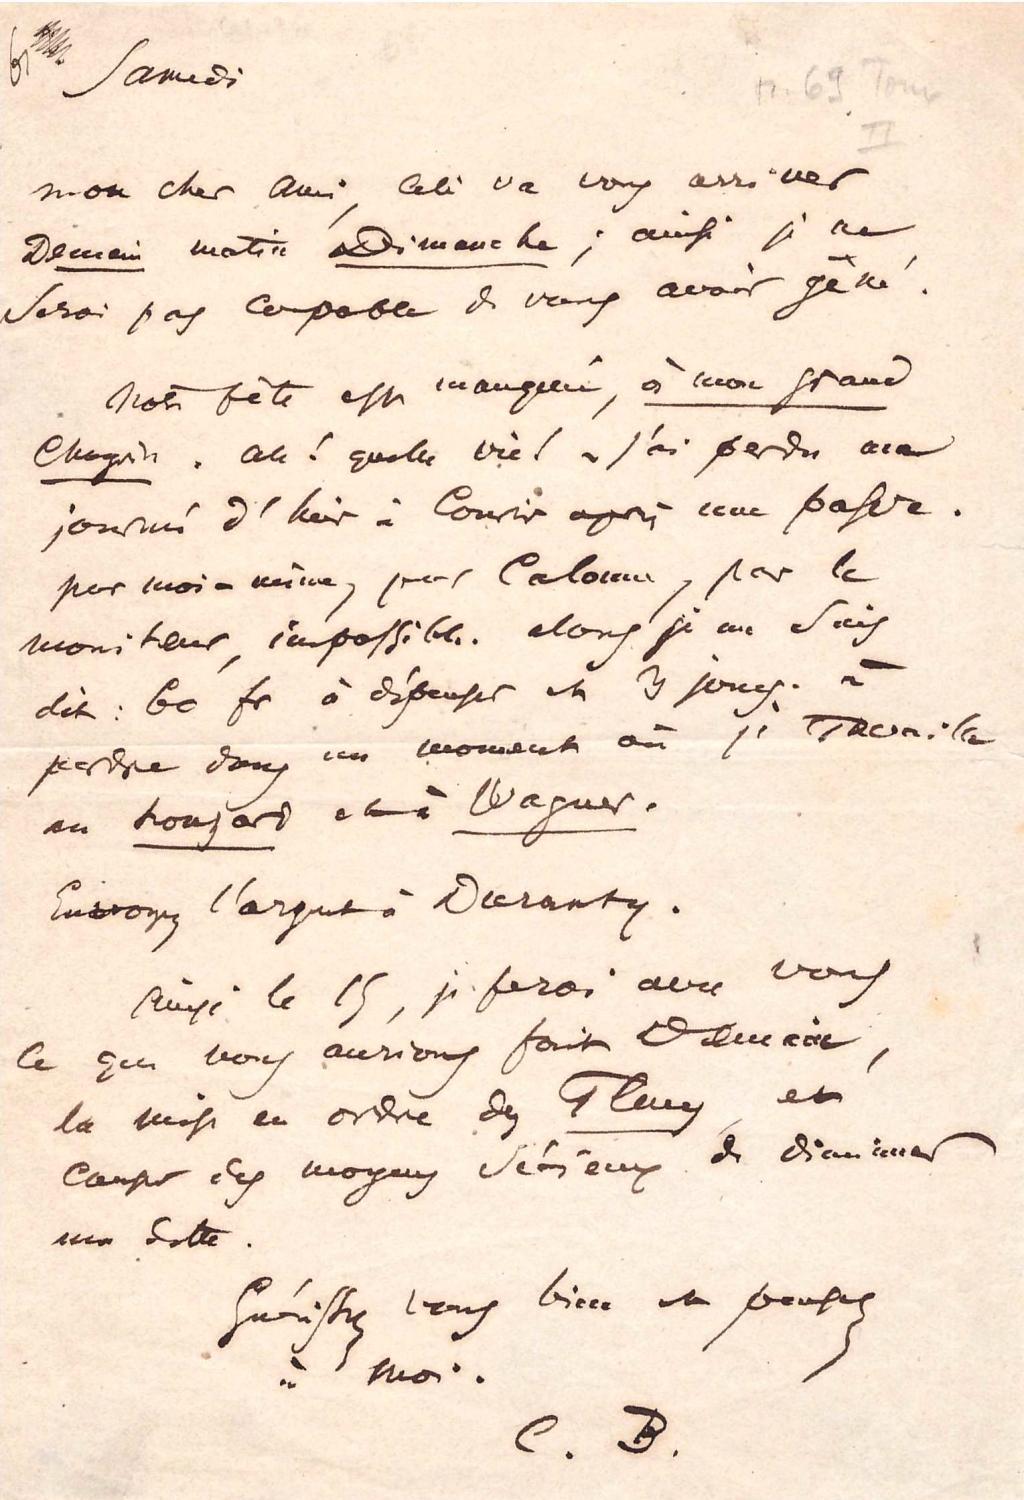 Samedi
n. 69 Tome
II
mon cher ami, cela va vous arriver
Demain matin Dimanche ; ainsi je ne
serai pas coupable de vous avoir gêné.
Notre fête est manquée, à mon grand
chagrin. ah ! quelle vie ! - J'ai perdu ma
journée d'hier à courir après une passe.
par moi-même, par Calonne, par le
moniteur, impossible. alors je me suis
dit : 60 fr à dépenser et 3 jours à
perdre dans un moment où je travaille
au hougard et à Wagner.
Envoyez l'argent à Duranty.
Ainsi le 15, je ferai avec vous
ce que nous aurions fait Demain,
la mise en ordre des Fleurs, et
causer des moyens sérieux de diminuer
ma dette.
Guérissez vous bien et pensez
à moi.
C. B.